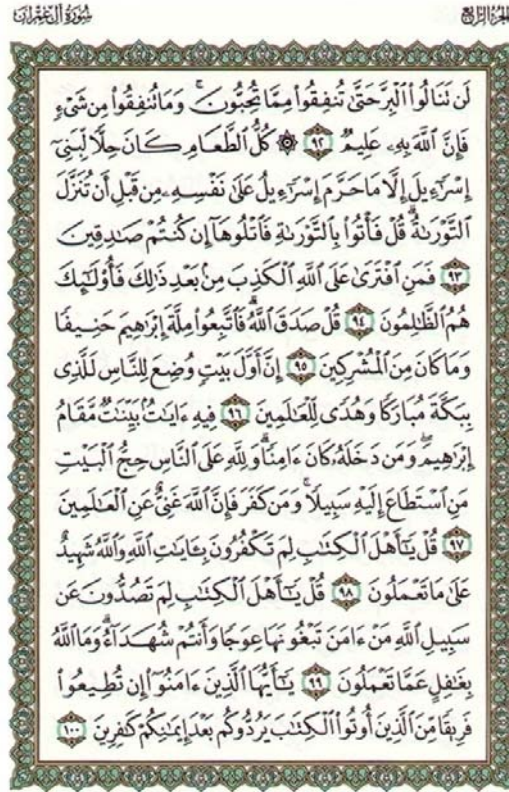 الجزء الرابع
سُورَةُ آلِ عِمْرَان
لَن تَنَالُوا۟ ٱلْبِرَّ حَتَّىٰ تُنفِقُوا۟ مِمَّا تُحِبُّونَ ۚ وَمَا تُنفِقُوا۟ مِن شَىْءٍ
فَإِنَّ ٱللَّهَ بِهِۦ عَلِيمٌ ٩٢ ۞ كُلُّ ٱلطَّعَامِ كَانَ حِلًّا لِّبَنِىٓ
إِسْرَٰٓءِيلَ إِلَّا مَا حَرَّمَ إِسْرَٰٓءِيلُ عَلَىٰ نَفْسِهِۦ مِن قَبْلِ أَن تُنَزَّلَ
ٱلتَّوْرَىٰةُ ۗ قُلْ فَأْتُوا۟ بِٱلتَّوْرَىٰةِ فَٱتْلُوهَآ إِن كُنتُمْ صَـٰدِقِينَ
٩٣ فَمَنِ ٱفْتَرَىٰ عَلَى ٱللَّهِ ٱلْكَذِبَ مِنۢ بَعْدِ ذَٰلِكَ فَأُو۟لَـٰٓئِكَ
هُمُ ٱلظَّـٰلِمُونَ ٩٤ قُلْ صَدَقَ ٱللَّهُ ۗ فَٱتَّبِعُوا۟ مِلَّةَ إِبْرَٰهِيمَ حَنِيفًا
وَمَا كَانَ مِنَ ٱلْمُشْرِكِينَ ٩٥ إِنَّ أَوَّلَ بَيْتٍ وُضِعَ لِلنَّاسِ لَلَّذِى
بِبَكَّةَ مُبَارَكًا وَهُدًى لِّلْعَـٰلَمِينَ ٩٦ فِيهِ ءَايَـٰتٌۢ بَيِّنَـٰتٌ مَّقَامُ
إِبْرَٰهِيمَ ۖ وَمَن دَخَلَهُۥ كَانَ ءَامِنًا ۗ وَلِلَّهِ عَلَى ٱلنَّاسِ حِجُّ ٱلْبَيْتِ
مَنِ ٱسْتَطَاعَ إِلَيْهِ سَبِيلًا ۚ وَمَن كَفَرَ فَإِنَّ ٱللَّهَ غَنِىٌّ عَنِ ٱلْعَـٰلَمِينَ
٩٧ قُلْ يَـٰٓأَهْلَ ٱلْكِتَـٰبِ لِمَ تَكْفُرُونَ بِـَٔايَـٰتِ ٱللَّهِ وَٱللَّهُ شَهِيدٌ
عَلَىٰ مَا تَعْمَلُونَ ٩٨ قُلْ يَـٰٓأَهْلَ ٱلْكِتَـٰبِ لِمَ تَصُدُّونَ عَن
سَبِيلِ ٱللَّهِ مَنْ ءَامَنَ تَبْغُونَهَا عِوَجًا وَأَنتُمْ شُهَدَآءُ ۗ وَمَا ٱللَّهُ
بِغَـٰفِلٍ عَمَّا تَعْمَلُونَ ٩٩ يَـٰٓأَيُّهَا ٱلَّذِينَ ءَامَنُوٓا۟ إِن تُطِيعُوا۟
فَرِيقًا مِّنَ ٱلَّذِينَ أُوتُوا۟ ٱلْكِتَـٰبَ يَرُدُّوكُم بَعْدَ إِيمَـٰنِكُمْ كَـٰفِرِينَ ١٠٠